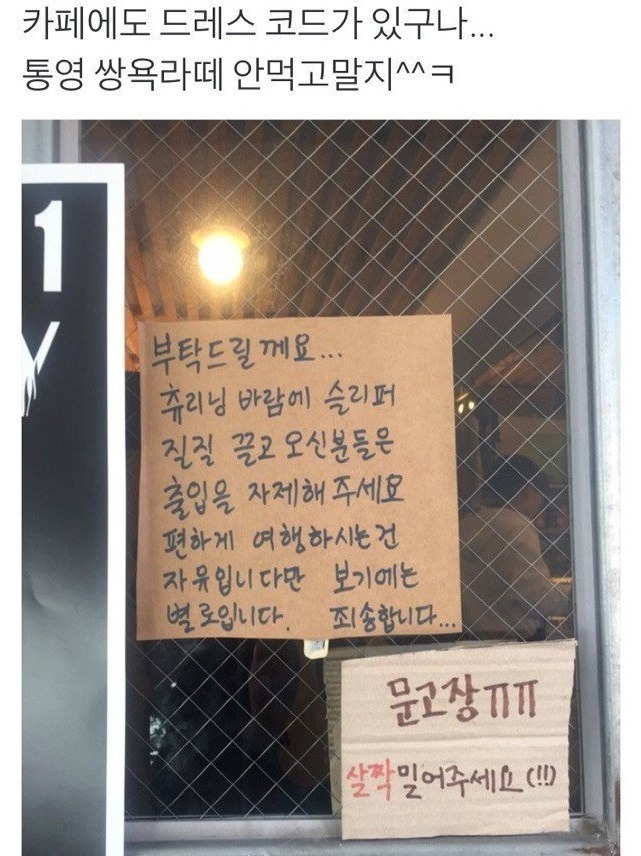 카페에도 드레스 코드가 있구나...
통영 쌍욕라떼 안먹고말지^^ㅋ
1
Y
부탁드릴께요...
츄리닝 바람에 슬리퍼
질질 끌고 오신분들은
출입을 자제해 주세요
편하게 여행하시는건
자유입니다만 보기에는
별로입니다. 죄송합니다...
문고장ㅠㅠ
살짝밀어주세요(!!)